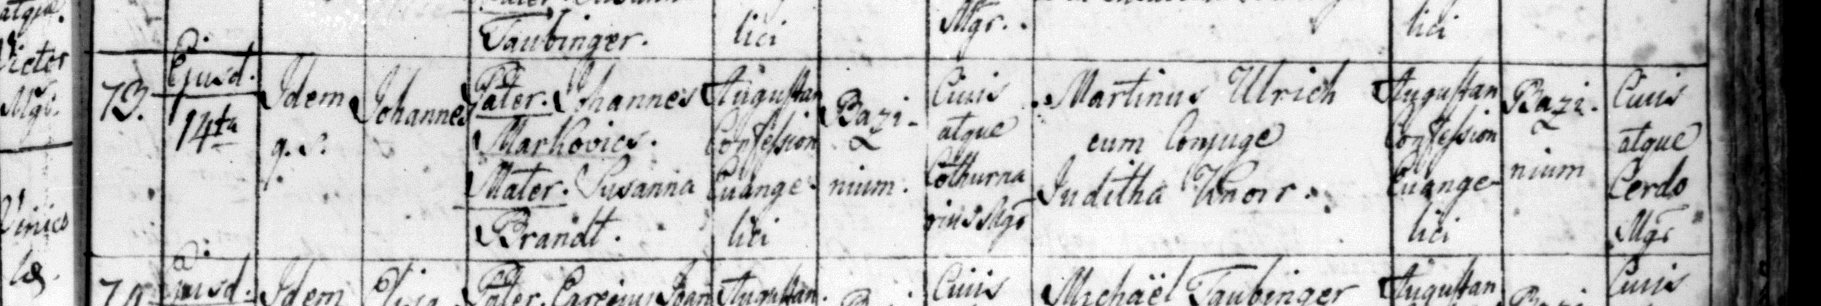 Taubinger. lici Mgr. lici
73. Ejusd. 14ta
Idem q. s.
Johannes
Pater. Johannes
Markovics.
Mater. Susanna
Brandt.
Augustan
Confession
Euange-
lici
Bazi-
nium.
Ciuis
atque
Cothurna
rius Mgr
Martinus Ulrich
cum Conjuge
Juditha Knorr.
Augustan
Confession
Euange-
lici
Bazi-
nium
Ciuis
atque
Cerdo
Mgr
Ejusd. Idem Pater. Augustan. Ciuis Michaël Taubinger Augustan Ciuis